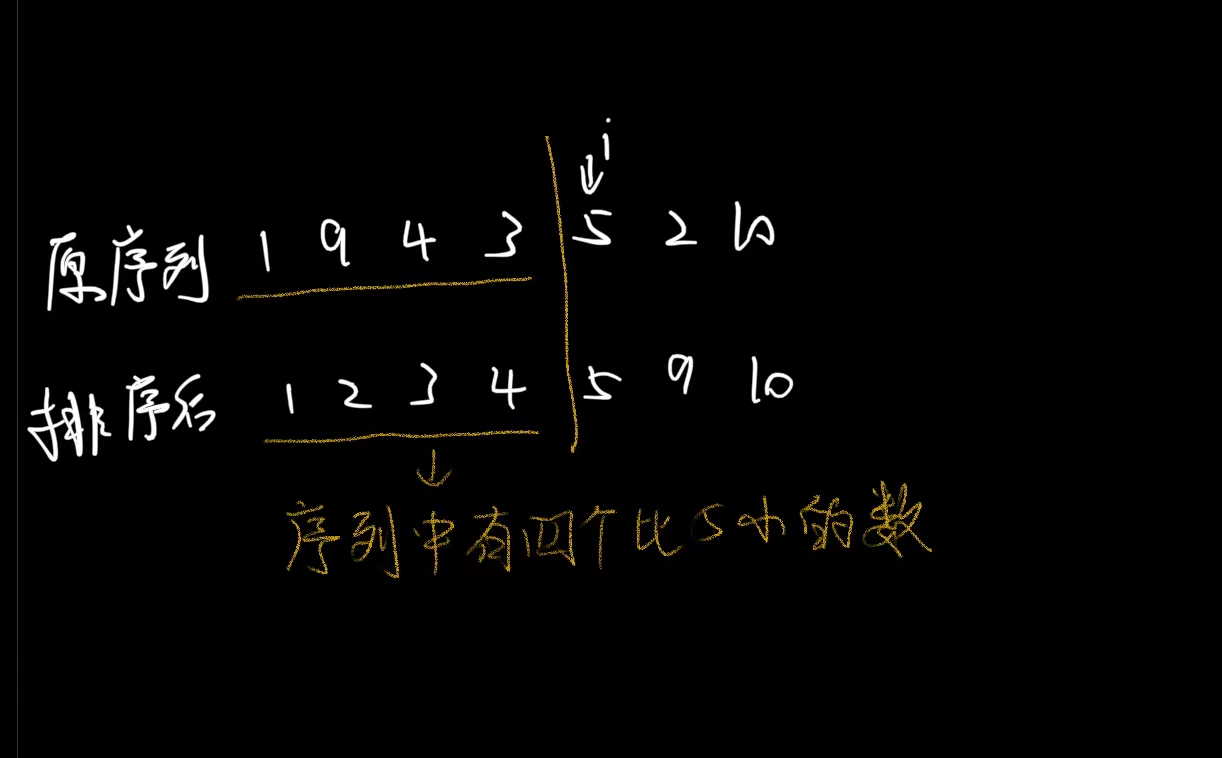 i
原序列 1 9 4 3 5 2 10
排序后 1 2 3 4 5 9 10
序列中有四个比5小的数